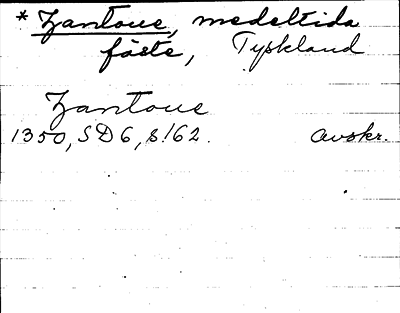 * Zantoue, medeltida
fäste, Tyskland
Zantoue
1350, SD 6, s. 162. avskr.